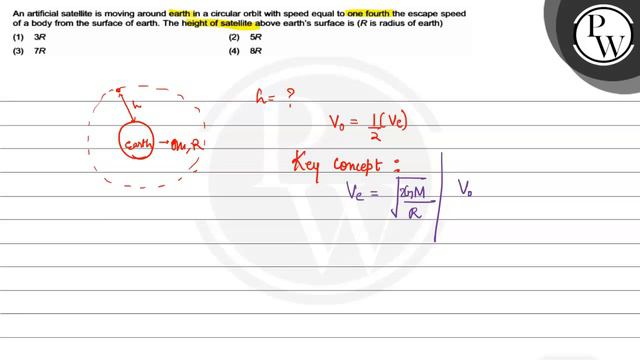 An artificial satellite is moving around earth in a circular orbit with speed equal to one fourth the escape speed
of a body from the surface of earth. The height of satellite above earth's surface is (R is radius of earth)
(1) 3R (2) 5R
(3) 7R (4) 8R
P
W
h
earth → m, R
h = ?
V₀ = 1/2 (Ve)
Key concept :
Ve = √2GM/R V₀